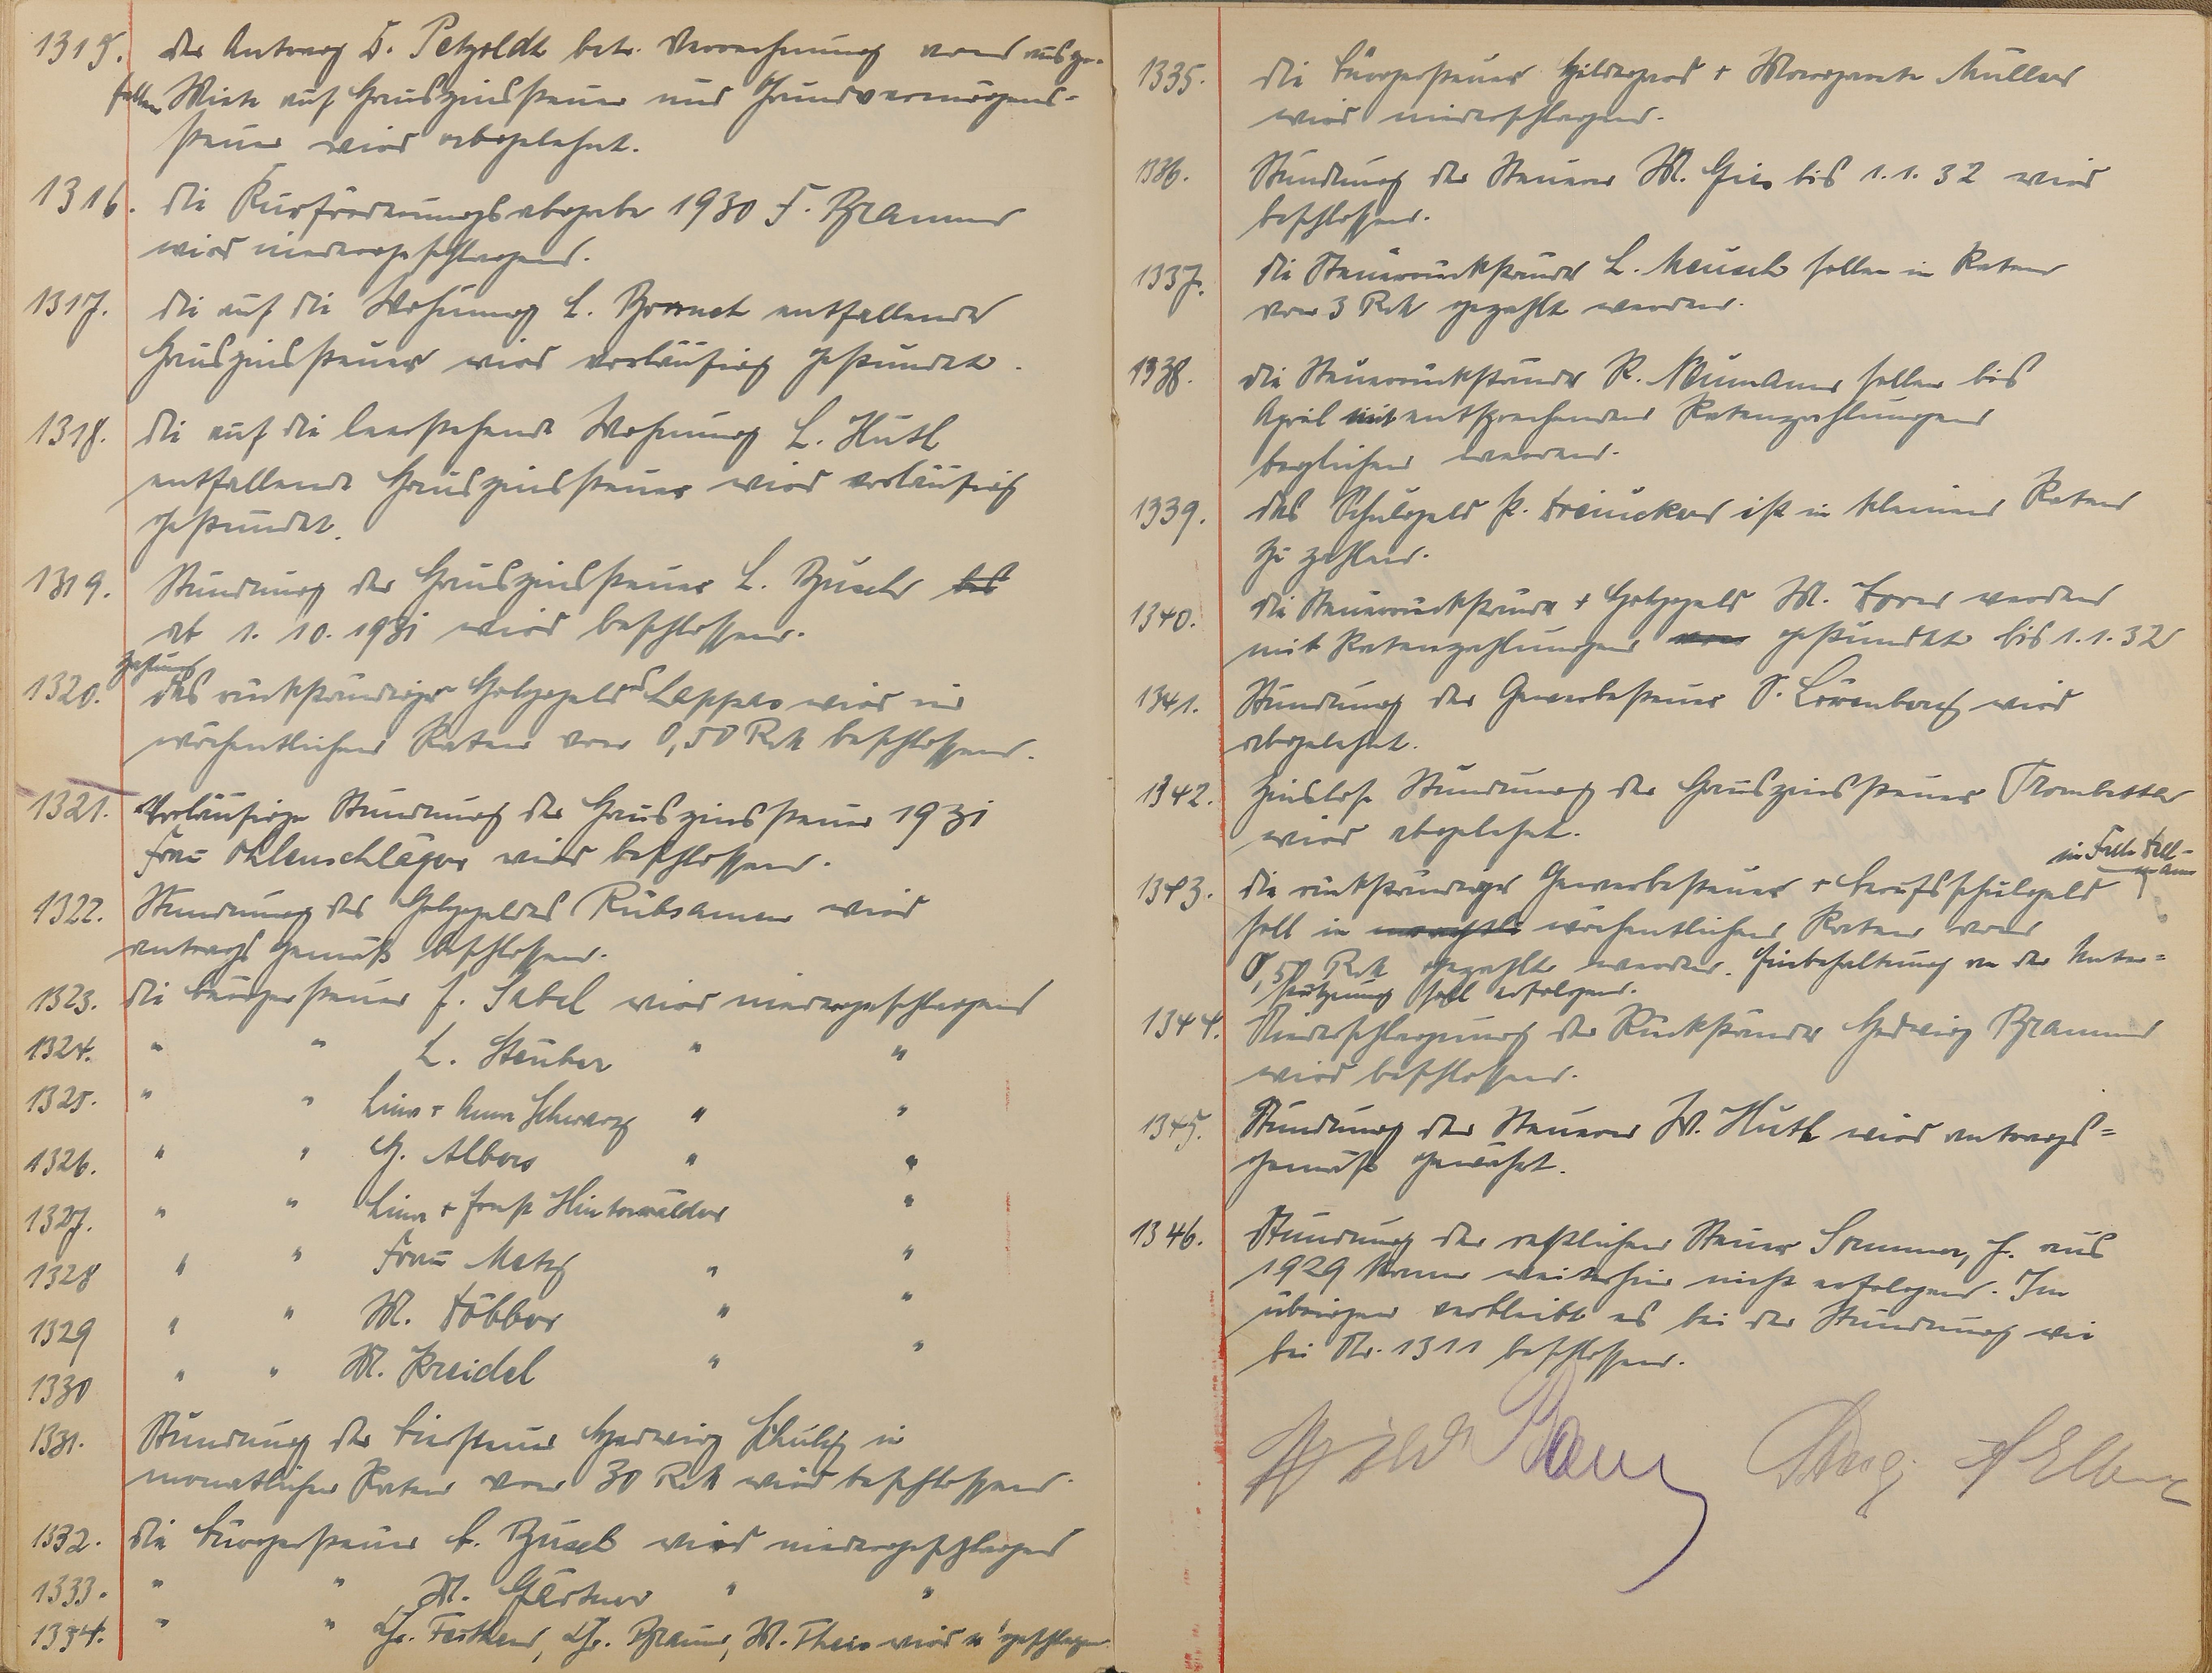 1315. Der Antrag D. Petzoldt betr. Verrechnung von ausge-
fallener Miete auf Hauszinssteuer und Grundvermögens-
steuer wird abgelehnt.
1316. Die Kurförderungsabgabe 1930 F. Braun
wird niedergeschlagen.
1317. Die auf die Wohnung L. entfallende
Hauszinssteuer wird vorläufig gestundet.
1318. Die auf die leerstehende Wohnung L. Huth
entfallende Hauszinssteuer wird vorläufig
gestundet.
1319. Stundung der Hauszinssteuer L. Busch bis
ab 1. 10. 1931 wird beschlossen.
Zahlung
1320. des rückständigen Holzgeldes Lappas wird in
wöchentlichen Raten von 0,50 RM beschlossen.
1321. Vorläufige Stundung der Hauszinssteuer 1931
Frau Ohlenschläger wird beschlossen.
1322. Stundung des Holzgeldes Rübsamen wird
antragsgemäß beschlossen.
1323. Die Bürgersteuer J. Sabel wird niedergeschlagen
1324. " " L. Steuber " "
1325. " " Lina + Anna Schwarz " "
1326. " " G. Albers " "
1327. " " Lina + Ernst Hinterwälder "
1328 " " Frau Metz " "
1329 " " M. Döbber " "
1330 " " M. Kreidel " "
1331. Stundung der Biersteuer Hedwig Schulz in
monatlichen Raten von 30 RM wird beschlossen.
1332. Die Bürgersteuer E. Busch wird niedergeschlagen
1333. " " M. Gärtner " "
1334. " " Chr. Chr. Braun, M. Theis wird n'geschlagen
1335. Die Bürgersteuer Hildegard + Margarete Müller
wird niederschlagen.
1336. Stundung der Steuern M. Gies bis 1.1.32 wird
beschlossen.
1337. Die Steuerrückstände L. Meusch sollen in Raten
von 3 RM gezahlt werden.
1338. Die Steuerrückstände R. Naumann sollen bis
April mit entsprechenden Ratenzahlungen
beglichen werden.
1339. Das Schulgeld P. ist in kleinen Raten
zu zahlen.
1340. Die Steuerrückstände + Holzgeld M. werden
mit Ratenzahlungen von gestundet bis 1.1.32
1341. Stundung der Gewerbesteuer S. Löwenberg wird
abgelehnt.
1342. Zinslose Stundung der Hauszinssteuer Trombetta
wird abgelehnt.
in Falle Dell-
mann
1343. Die rückständige Gewerbesteuer + Berufsschulgeld
soll in wöchentlichen Raten von
0,50 RM gezahlt werden. Einbehaltung an der Unter-
stützung soll erfolgen.
1344. Niederschlagung der Rückstände Hedwig Braun
wird beschlossen.
1345. Stundung der Steuern W. Huth wird antrags-
gemäß gewährt.
1346. Stundung der restlichen Steuer Sommer, J. aus
1929 kann weiterhin nicht erfolgen. Im
übrigen verbleibt es bei der Stundung wie
bei Nr. 1311 beschlossen.